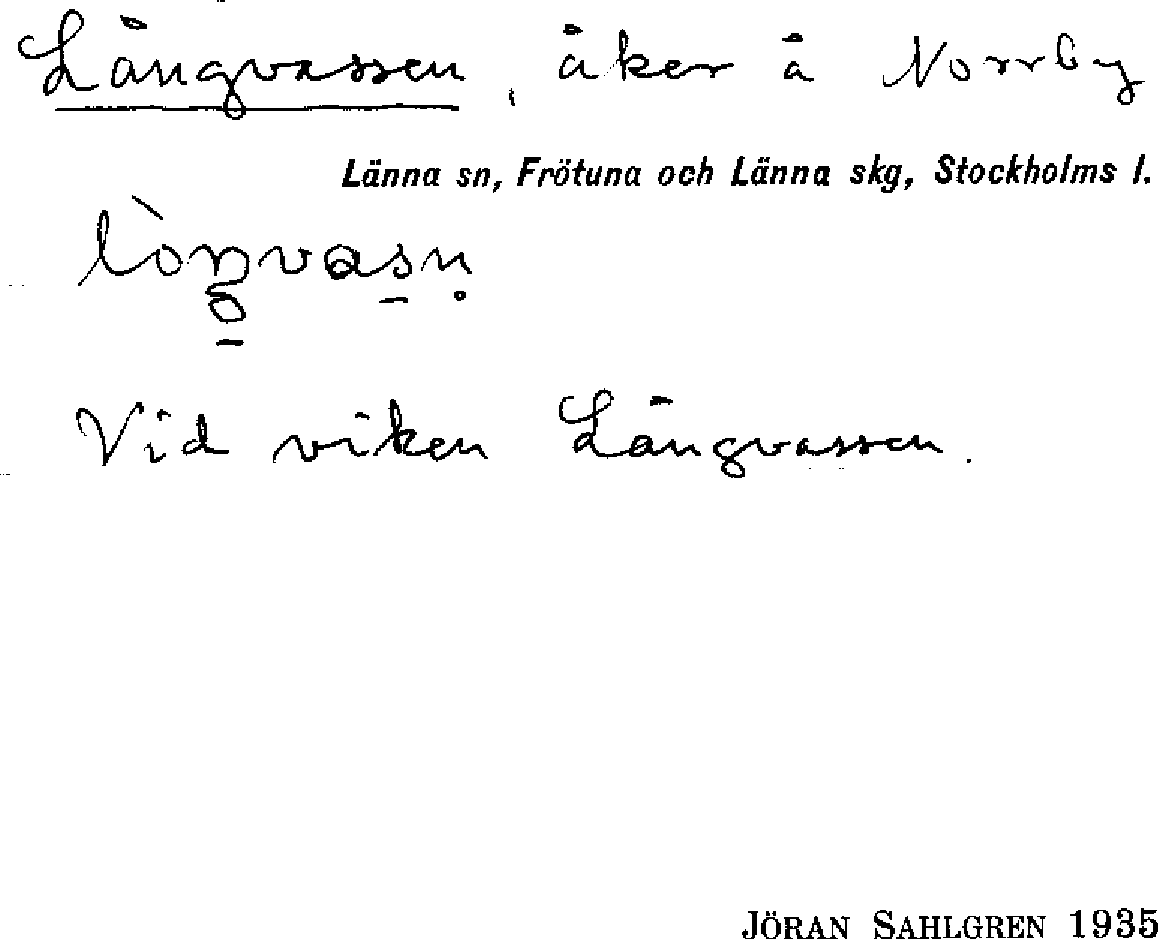 Långvassen, åker å Norrby
Länna sn, Frötuna och Länna skg, Stockholms l.
lòŋvasn̥
Vid viken Långvassen.
JÖRAN SAHLGREN 1935